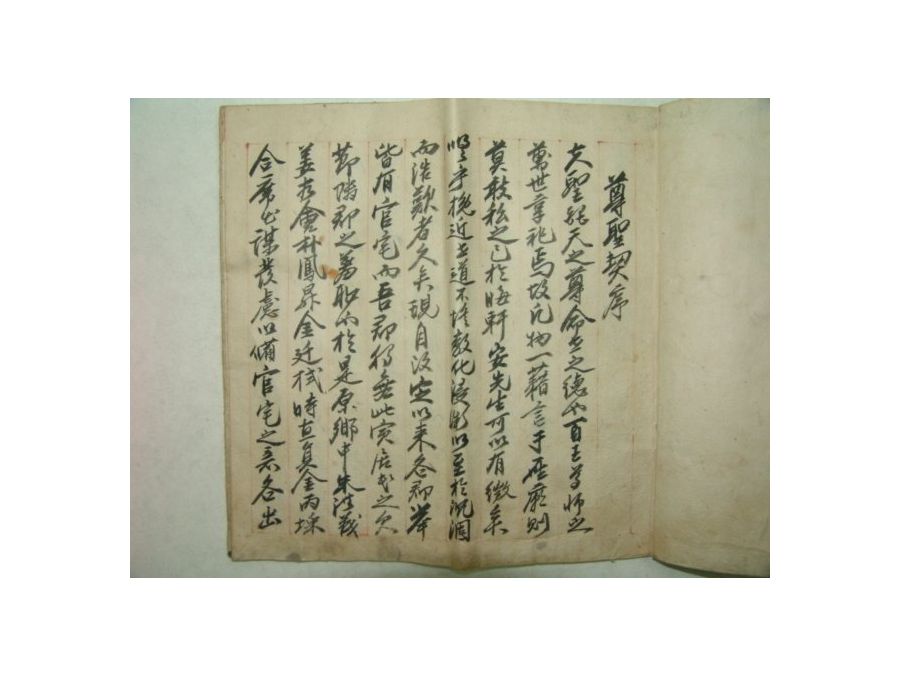 尊聖契序
夫聖繼天之尊命世之德而百王尊師之
萬世享祀焉故凡物一藉言于聖廟則
莫敢私之已於晦軒安先生可以有徵矣
嗚乎挽近世道不墜教化浸漸以至於沉涸
而浩歎者久矣現自設定以來各郡舉
皆有官宅而吾郡獨無此實居之欠
節隣郡之羞恥而於是原鄉中朱洪義
姜在會朴鳳昇金廷栻時直員金丙埰
合席出謀發慮以備官宅之意各出